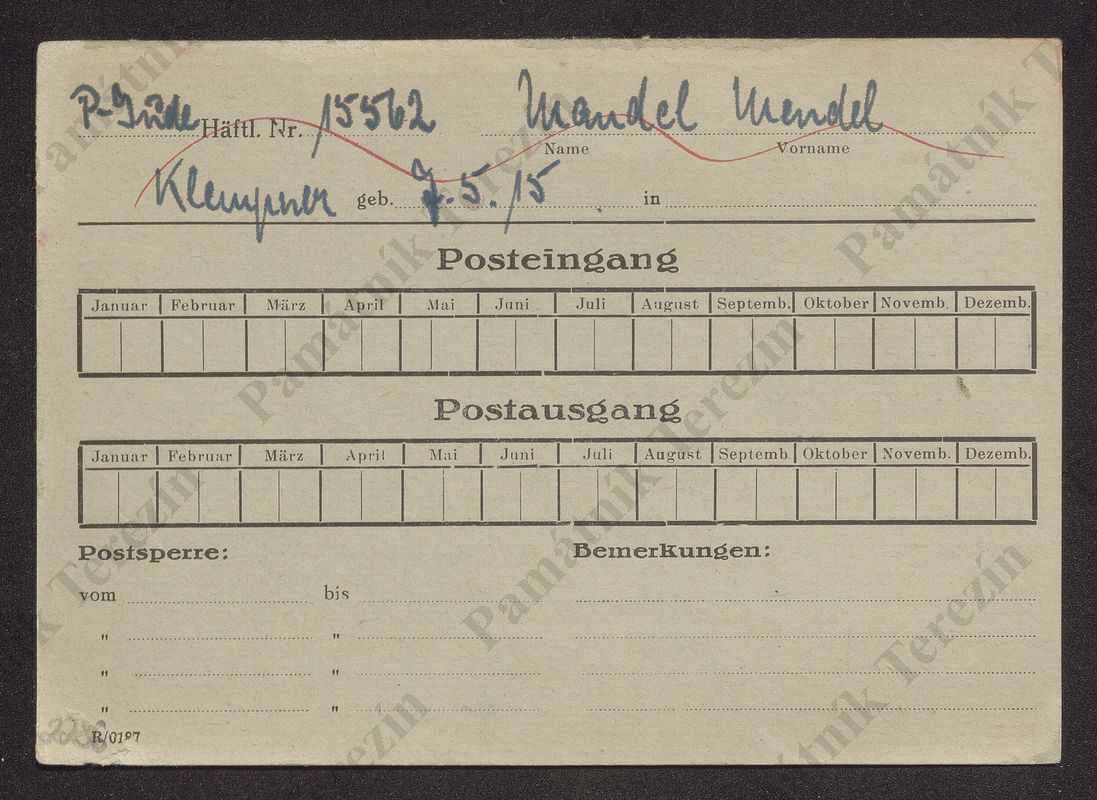 P-Jude Häftl. Nr. 15562 Mandel Mendel
Name Vorname
Klempner geb. 7.5.15 in
Posteingang
Januar Februar März April Mai Juni Juli August Septemb. Oktober Novemb. Dezemb.
Postausgang
Januar Februar März April Mai Juni Juli August Septemb. Oktober Novemb. Dezemb.
Postsperre: Bemerkungen:
vom bis
" "
" "
" "
R/0187
Památník Terezín
Památník Terezín
Památník Terezín
Památník Terezín